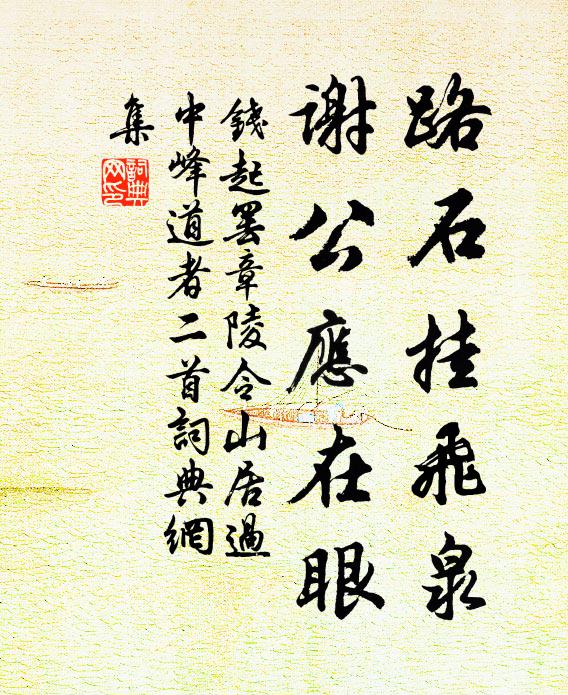 路石挂飛泉
謝公應在眼
錢起罢章陵令山居過
中峰道者二首詞典網
集
詞典网印